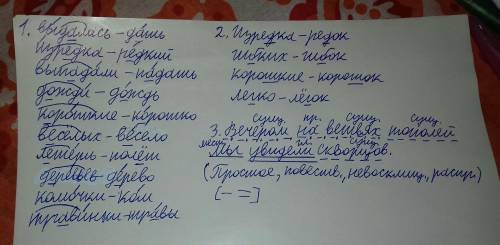 1. выдалась - дать
Изредка - редкий
выпадали - падать
дожди - дождь
короткие - коротко
весёлых - весело
- полёт
деревья - дерево
комочки - ком
травинки - травы
2. Изредка - редок
гибких - гибок
короткие - короток
легко - лёгок
сущ. пр. сущ. сущ.
3. Вечером на ветвях тополей
мест. гл. сущ.
Мы увидели скворцов.
(Простое, повеств., невосклиц., распр.)
[- =]